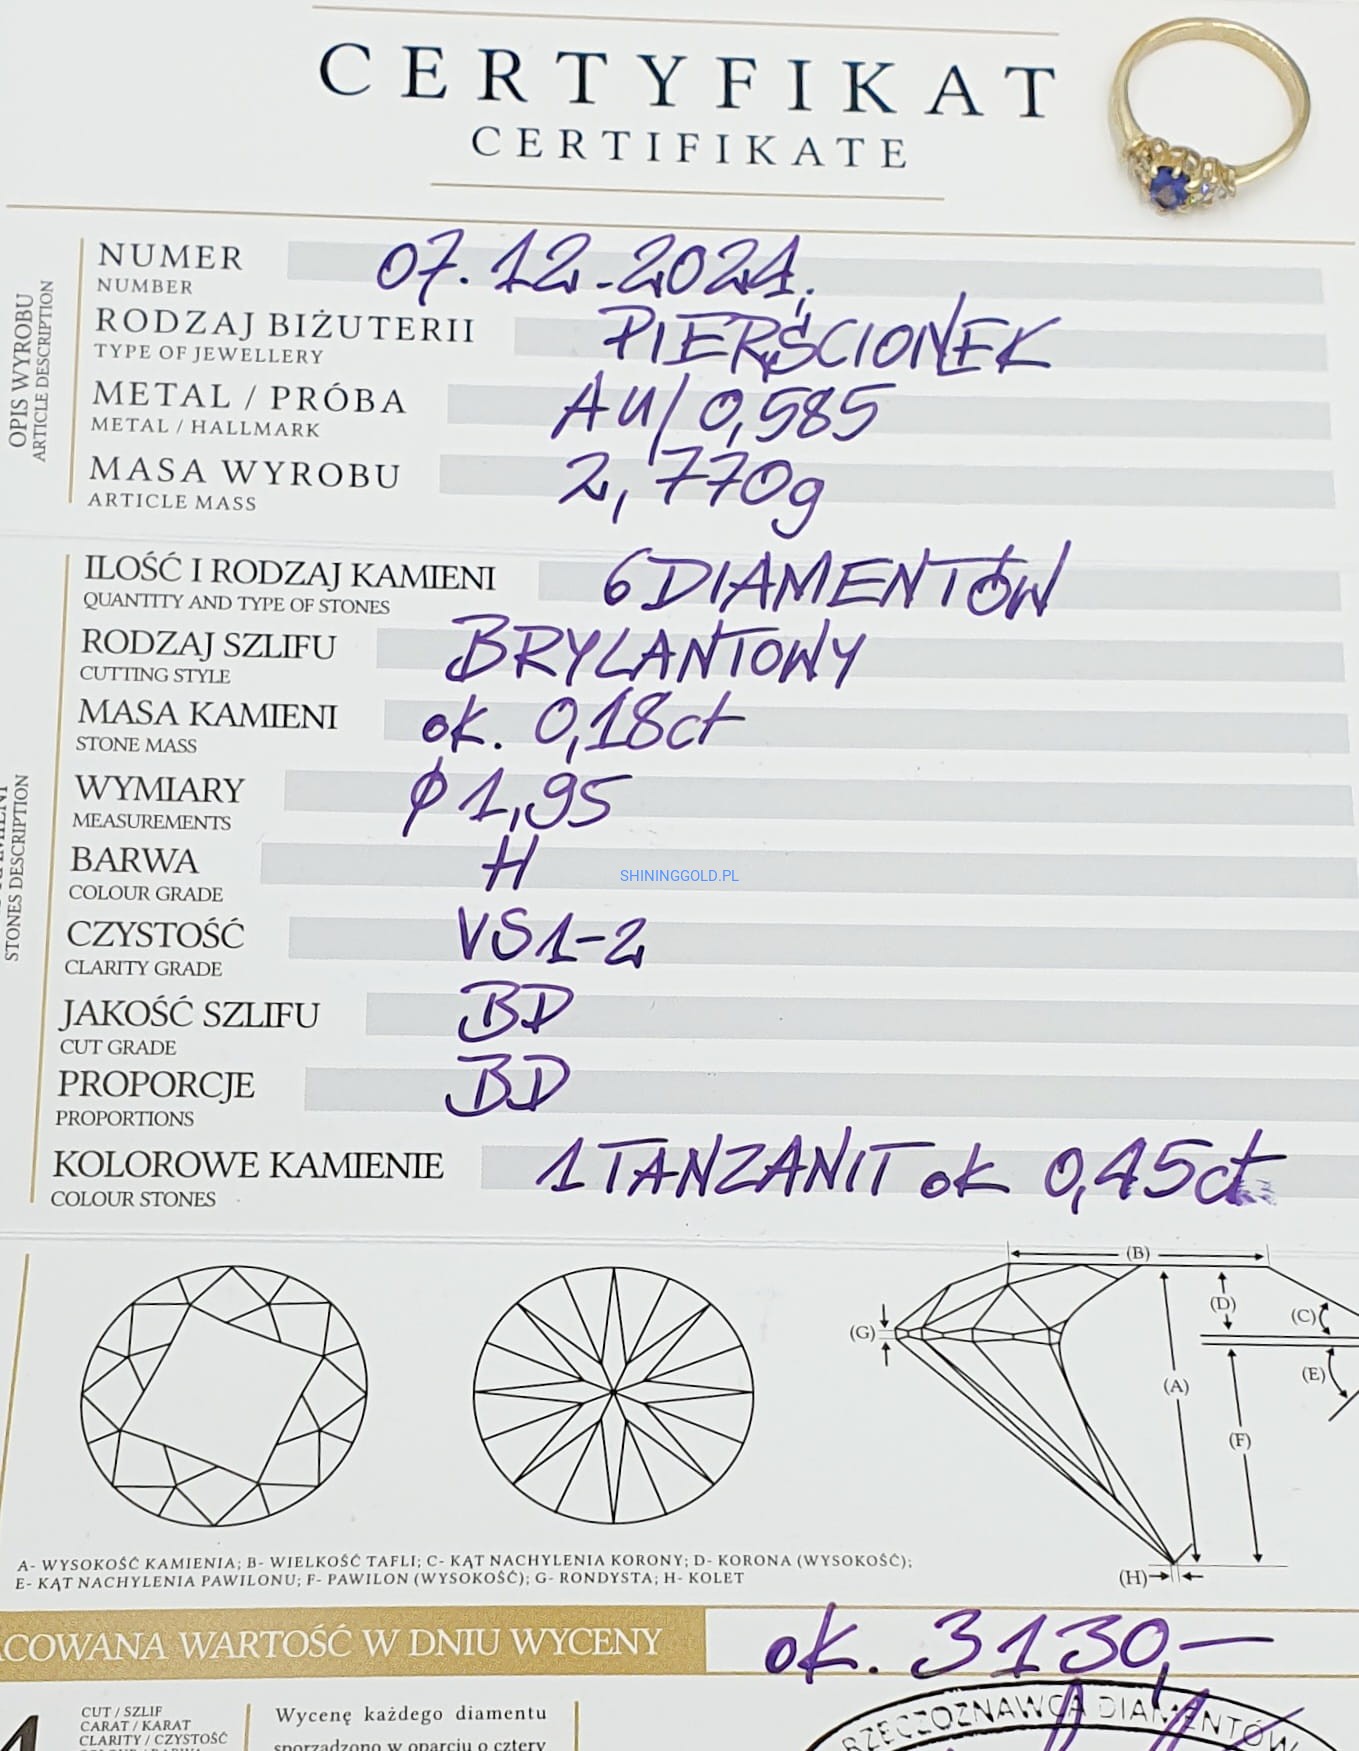 CERTYFIKAT
CERTIFIKATE
OPIS WYROBU
ARTICLE DESCRIPTION
NUMER 07.12.2021.
NUMBER
RODZAJ BIŻUTERII PIERŚCIONEK
TYPE OF JEWELLERY
METAL / PRÓBA Au/0,585
METAL / HALLMARK
MASA WYROBU 2,770g
ARTICLE MASS
STONES DESCRIPTION
ILOŚĆ I RODZAJ KAMIENI 6 DIAMENTÓW
QUANTITY AND TYPE OF STONES
RODZAJ SZLIFU BRYLANTOWY
CUTTING STYLE
MASA KAMIENI ok. 0,18ct
STONE MASS
WYMIARY ϕ 1,95
MEASUREMENTS
BARWA H
COLOUR GRADE
SHININGGOLD.PL
CZYSTOŚĆ VS1-2
CLARITY GRADE
JAKOŚĆ SZLIFU BD
CUT GRADE
PROPORCJE BD
PROPORTIONS
KOLOROWE KAMIENIE 1 TANZANIT ok 0,45ct
COLOUR STONES
(B)
(D)
(C)
(G)
(E)
(A)
(F)
(H)
A- WYSOKOŚĆ KAMIENIA; B- WIELKOŚĆ TAFLI; C- KĄT NACHYLENIA KORONY; D- KORONA (WYSOKOŚĆ);
E- KĄT NACHYLENIA PAWILONU; F- PAWILON (WYSOKOŚĆ); G- RONDYSTA; H- KOLET
COWANA WARTOŚĆ W DNIU WYCENY ok. 3130,—
CUT / SZLIF
CARAT / KARAT
CLARITY / CZYSTOŚĆ
Wycenę każdego diamentu
sporządzono w oparciu o cztery
RZECZOZNAWCA DIAMENTÓW